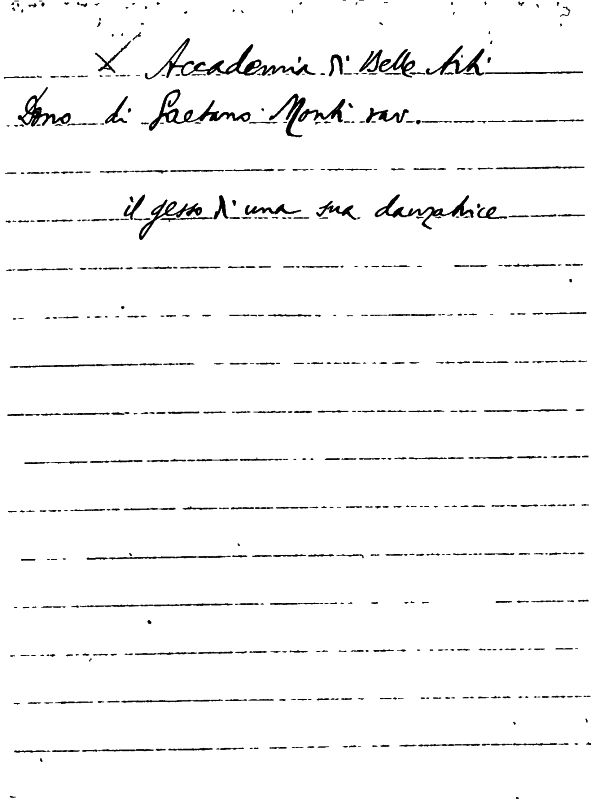 X Accademia di Belle Arti
Dono di Gaetano Monti rav.
il gesso d'una sua danzatrice